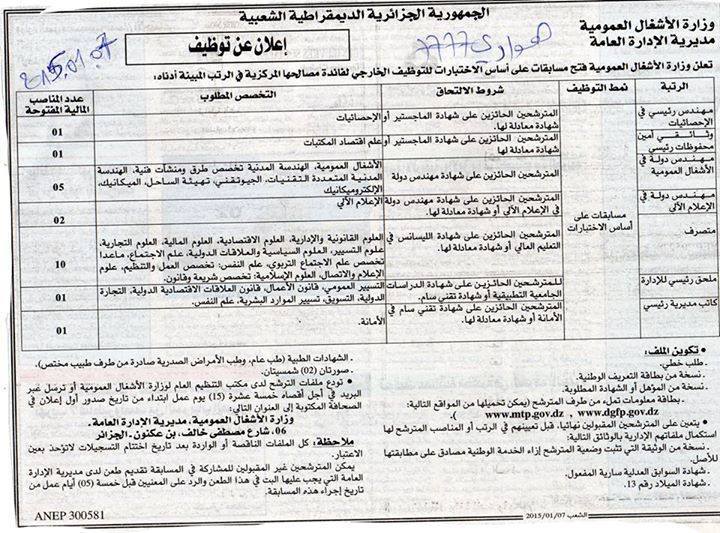 الجمهورية الجزائرية الديمقراطية الشعبية
وزارة الأشغال العمومية
مديرية الإدارة العامة
إعلان عن توظيف
هواري 7777
2015.01.07
تعلن وزارة الأشغال العمومية فتح مسابقات على أساس الاختبارات للتوظيف الخارجي لفائدة مصالحها المركزية في الرتب المبينة أدناه:
الرتبة
نمط التوظيف
شروط الالتحاق
التخصص المطلوب
عدد المناصب المالية المفتوحة
مسابقات على أساس الاختبارات
مهندس رئيسي في الإحصائيات
المترشحين الحائزين على شهادة الماجستير أو شهادة معادلة لها.
الإحصائيات
01
وثائقي أمين محفوظات رئيسي
المترشحين الحائزين على شهادة الماجستير أو شهادة معادلة لها.
علم اقتصاد المكتبات
01
مهندس دولة في الأشغال العمومية
المترشحين الحائزين على شهادة مهندس دولة
الأشغال العمومية، الهندسة المدنية تخصص طرق ومنشآت فنية، الهندسة
المدنية المتعددة التقنيات، الجيوتقني، تهيئة الساحل، الميكانيك،
الإلكتروميكانيك
05
مهندس دولة في الإعلام الآلي
المترشحين الحائزين على شهادة مهندس دولة في الإعلام الآلي أو شهادة معادلة لها.
الإعلام الآلي
02
متصرف
المترشحين الحائزين على شهادة الليسانس في التعليم العالي أو شهادة معادلة لها.
العلوم القانونية والإدارية، العلوم الاقتصادية، العلوم المالية، العلوم التجارية،
علوم التسيير، العلوم السياسية والعلاقات الدولية، علم الاجتماع، ماعدا
علم الاجتماع التربوي، علم النفس: تخصص العمل والتنظيم، علوم
الإعلام والاتصال، العلوم الإسلامية: تخصص شريعة وقانون.
10
ملحق رئيسي للإدارة
للمترشحين الحائزين على شهادة الدراسات الجامعية التطبيقية أو شهادة تقني سام.
التسيير العمومي، قانون الأعمال، قانون العلاقات الاقتصادية الدولية، التجارة
الدولية، التسويق، تسيير الموارد البشرية، علم النفس.
01
كاتب مديرية رئيسي
المترشحين الحائزين على شهادة تقني سام في الأمانة أو شهادة معادلة لها.
الأمانة.
01
• تكوين الملف:
- طلب خطي.
- نسخة من بطاقة التعريف الوطنية.
- نسخة من المؤهل أو الشهادة المطلوبة.
- بطاقة معلومات تملء من طرف المترشح (يمكن تحميلها من المواقع التالية:
www.mtp.gov.dz , www.dgfp.gov.dz ).
• يتعين على المترشحين المقبولين نهائيا، قبل تعيينهم في الرتب أو المناصب المترشح لها
استكمال ملفاتهم الإدارية بالوثائق التالية:
- نسخة من الوثيقة التي تثبت وضعية المترشح إزاء الخدمة الوطنية مصادق على مطابقتها
للأصل.
- شهادة السوابق العدلية سارية المفعول.
- شهادة الميلاد رقم 13.
- الشهادات الطبية (طب عام، وطب الأمراض الصدرية صادرة من طرف طبيب مختص).
- صورتان (02) شمسيتان.
• تودع ملفات الترشح لدى مكتب التنظيم العام لوزارة الأشغال العمومية أو ترسل عبر
البريد في أجل أقصاه خمسة عشرة (15) يوم عمل ابتداء من تاريخ صدور أول إعلان في
الصحافة المكتوبة إلى العنوان التالي:
وزارة الأشغال العمومية، مديرية الإدارة العامة.
06، شارع مصطفى خالف، بن عكنون، الجزائر
ملاحظة: كل الملفات الناقصة أو الواردة بعد تاريخ اختتام التسجيلات لاتؤخذ بعين
الاعتبار.
يمكن المترشحين غير المقبولين للمشاركة في المسابقة تقديم طعن لدى مديرية الإدارة
العامة التي يجب عليها البت في هذا الطعن والرد على المعنيين قبل خمسة (05) أيام عمل من
تاريخ إجراء هذه المسابقة.
ANEP 300581
الشعب 2015/01/07